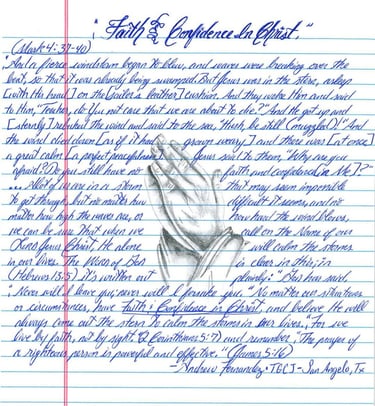 "Faith & Confidence In Christ."
(Mark 4:37-40)
"And a fierce windstorm began to blow, and waves were breaking over the
boat, so that it was already being swamped. But Jesus was in the stern, asleep
[with His head] on the [sailor's leather] cushion. And they woke Him and said
to Him, "Teacher, do You not care that we are about to die?" And He got up and
[sternly] rebuked the wind and said to the sea, "Hush, be still (muzzled)!" And
the wind died down [as if it had grown weary] and there was [at once]
a great calm [a perfect peacefulness]. Jesus said to them, "Why are you
afraid? Do you still have no faith and confidence [in Me]?"
... All of us are in a storm that may seem impossible
to get through, but no matter how difficult it seems, and no
matter how high the waves are, or how hard the wind blows,
we can be sure that when we call on the Name of our
Jesus Christ, He alone will calm the storms
in our lives. The Word of God is clear in this; in
(Hebrews 13:5) it's written out plainly: "He has said,
"Never will I leave you, never will I forsake you." No matter our situations
or circumstances, have Faith & Confidence in Christ, and believe He will
always come out the stern to calm the storms in our lives, "for we
live by faith, not by sight." (2 Corinthians 5:7) and remember, "The prayer of
a righteous person is powerful and effective." (James 5:16)
- Andrew Hernandez · TGCJ - San Angelo, Tx